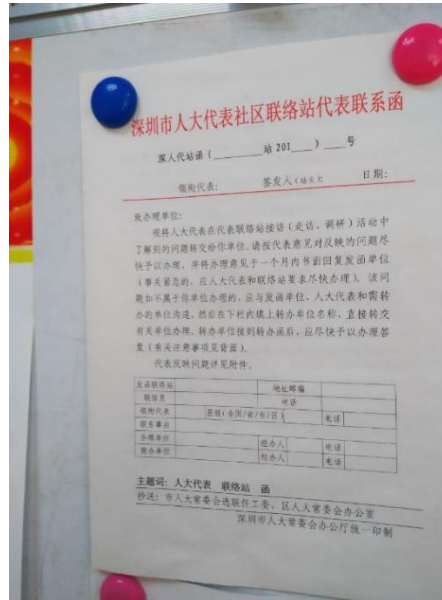 深圳市人大代表社区联络站代表联系函
深人代站函（______站 201___）___号
领衔代表： 签发人（站长）： 日期：
致办理单位：
现将人大代表在代表联络站接访（走访、调研）活动中
了解到的问题转交给你单位，请按代表意见对反映的问题尽
快予以办理，并将办理意见于一个月内书面回复发函单位
（事关紧急的，应人大代表和联络站要求尽快办理）。该问
题如不属于你单位办理的，应与发函单位、人大代表和需转
办的单位沟通，然后在下栏内填上转办单位名称，直接转交
有关单位办理。转办单位接到转办函后，应尽快予以办理答
复（有关注意事项见背面）。
代表反映问题详见附件。
发函联络站 地址邮编
联络员 电话
领衔代表 层级（全国/省/市/区） 电话
联系事由
办理单位 经办人 电话
转办单位 经办人 电话
主题词：人大代表 联络站 函
抄送：市人大常委会选联任工委、区人大常委会办公室
深圳市人大常委会办公厅统一印制